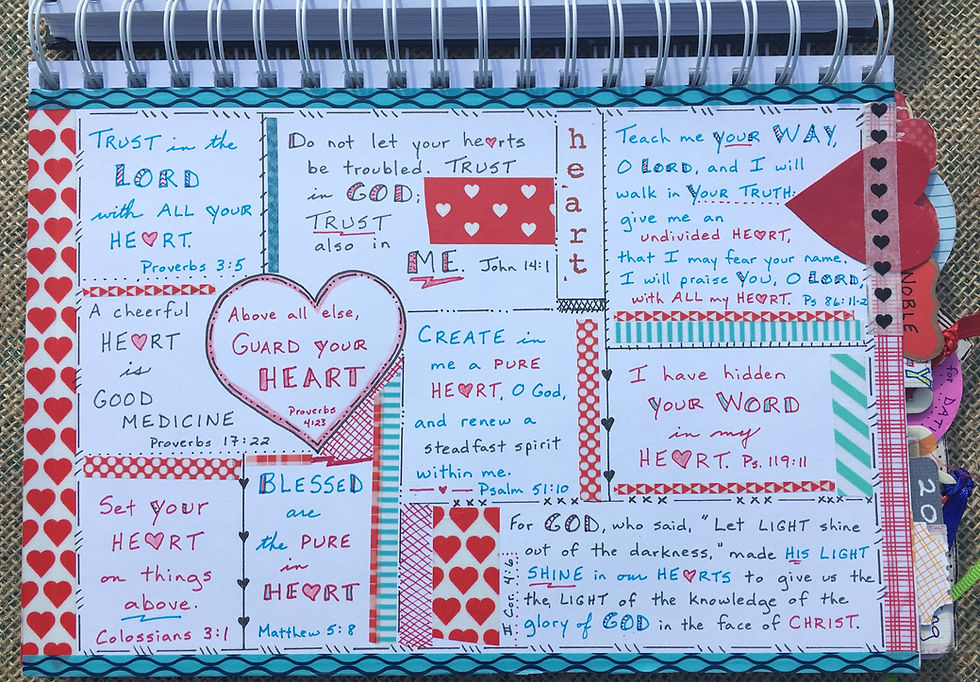 TRUST in the
LORD
with ALL YOUR
HEART.
Proverbs 3:5
Do not let your hearts
be troubled. TRUST
in GOD;
TRUST
also in
ME. John 14:1
heart
Teach me your WAY,
O LORD, and I will
walk in YOUR TRUTH;
give me an
undivided HEART,
that I may fear your name.
I will praise You, O LORD,
with ALL my HEART. Ps 86:11-2
A cheerful
HEART
is
GOOD
MEDICINE
Proverbs 17:22
Above all else,
GUARD YOUR
HEART
Proverbs
4:23
CREATE in
me a PURE
HEART, O God,
and renew a
steadfast spirit
within me.
Psalm 51:10
I have hidden
YOUR WORD
in my
HEART. Ps. 119:11
Set your
HEART
on things
above.
Colossians 3:1
BLESSED
are
the PURE
in
HEART
Matthew 5:8
For GOD, who said, "Let LIGHT shine
out of the darkness," made HIS LIGHT
SHINE in our HEARTS to give us the
the LIGHT of the knowledge of the
glory of GOD in the face of CHRIST.
II Cor. 4:6
NOBLE
for
DAT
20